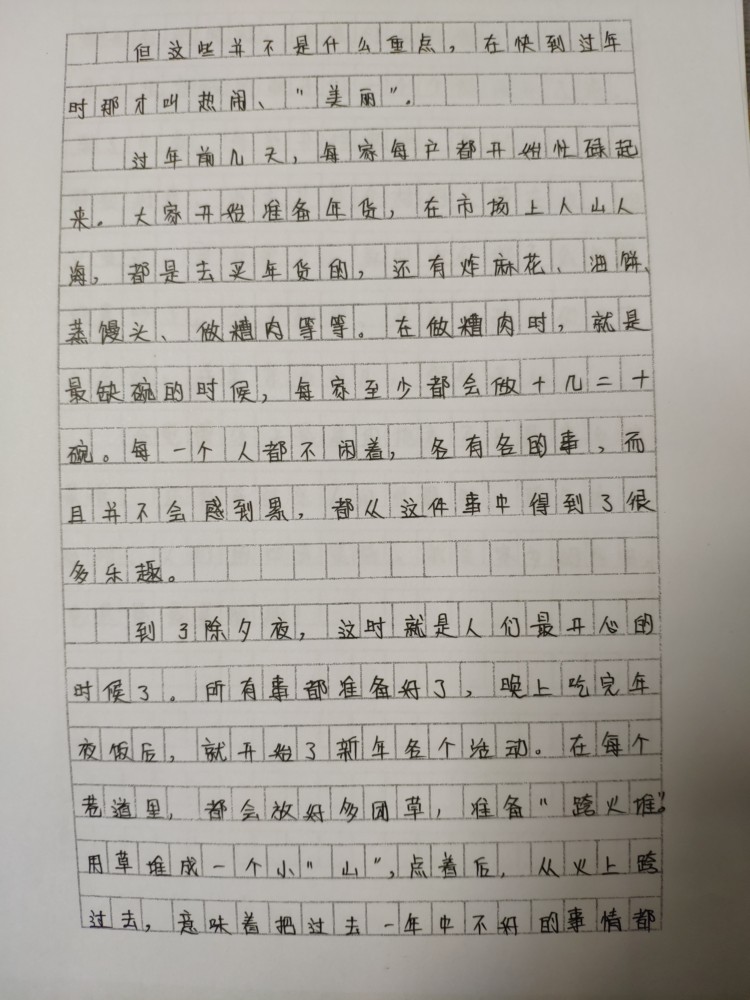 但这些并不是什么重点，在快到过年
时那才叫热闹、“美丽”。
过年前几天，每家每户都开始忙碌起
来。大家开始准备年货，在市场上人山人
海，都是去买年货的，还有炸麻花、油饼、
蒸馒头、做糟肉等等。在做糟肉时，就是
最缺碗的时候，每家至少都会做十几二十
碗。每一个人都不闲着，各有各的事，而
且并不会感到累，都从这件事中得到了很
多乐趣。
到了除夕夜，这时就是人们最开心的
时候了。所有事都准备好了，晚上吃完年
夜饭后，就开始了新年各个活动。在每个
巷道里，都会放好多团草，准备“跨火堆”。
用草堆成一个小“山”，点着后，从火上跨
过去，意味着把过去一年中不好的事情都